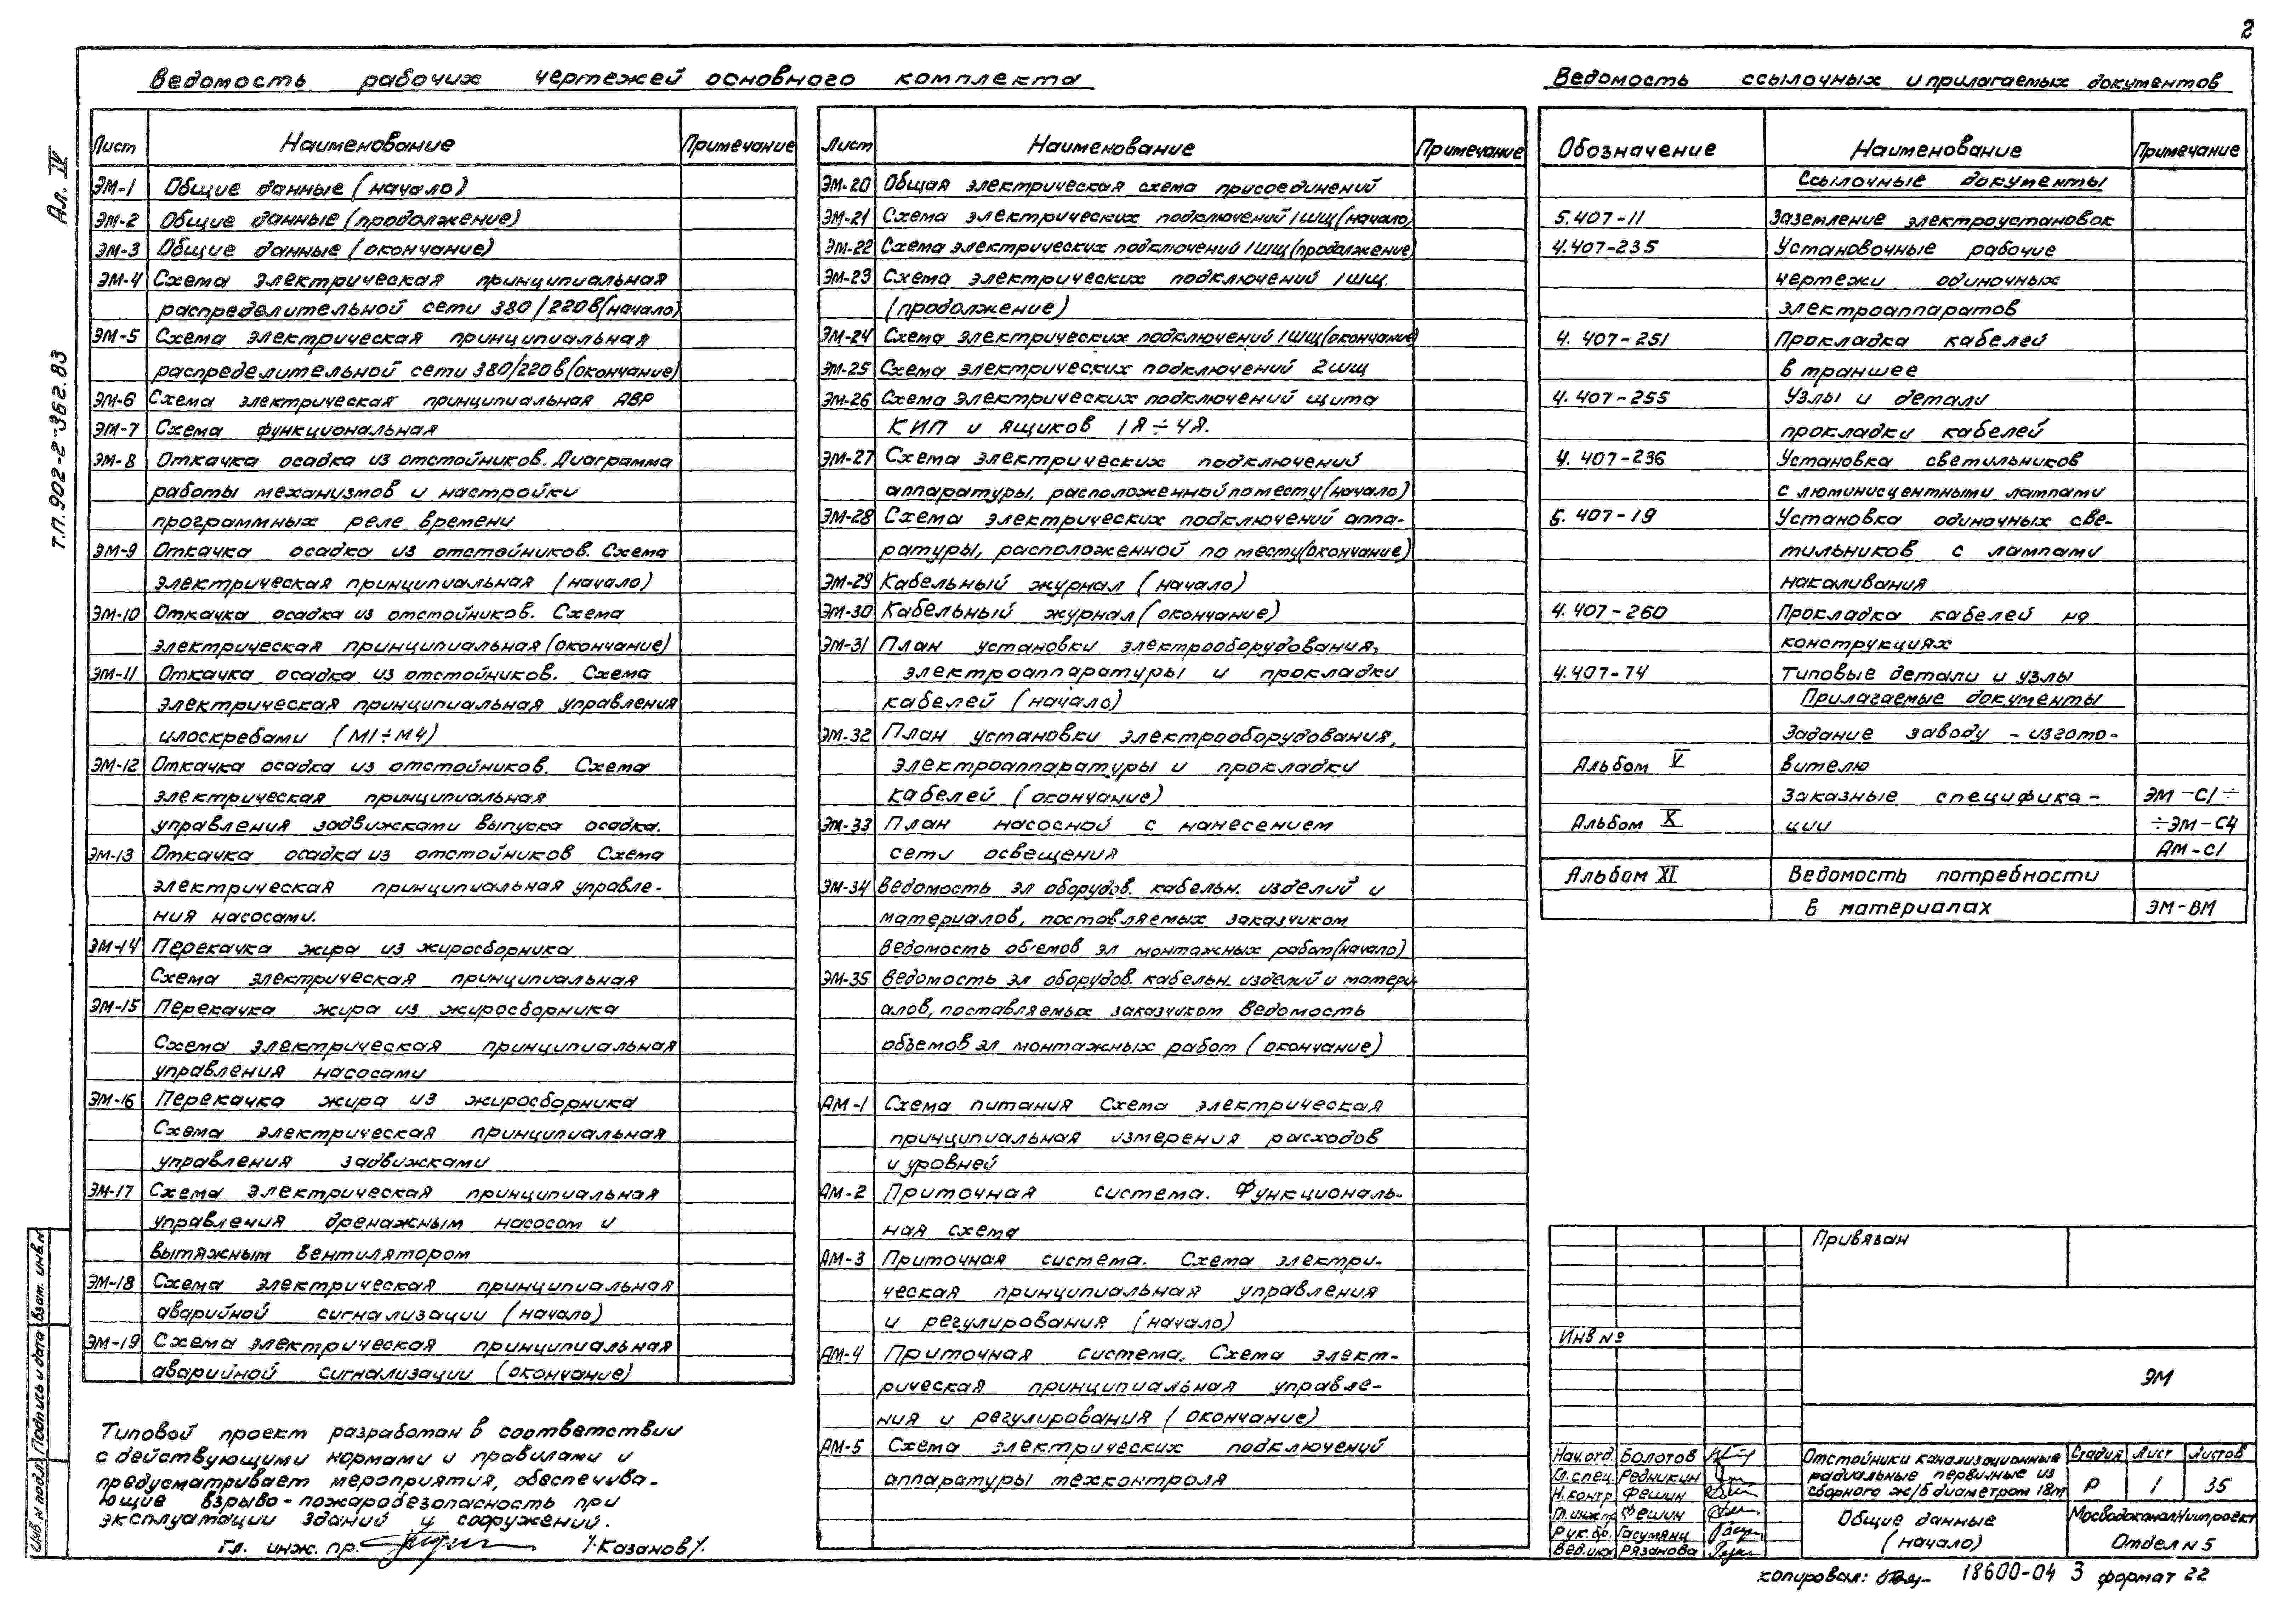 2
Ведомость рабочих чертежей основного комплекта
Лист Наименование Примечание
ЭМ-1 Общие данные (начало)
ЭМ-2 Общие данные (продолжение)
ЭМ-3 Общие данные (окончание)
ЭМ-4 Схема электрическая принципиальная
распределительной сети 380/220в (начало)
ЭМ-5 Схема электрическая принципиальная
распределительной сети 380/220в (окончание)
ЭМ-6 Схема электрическая принципиальная АВР
ЭМ-7 Схема функциональная
ЭМ-8 Откачка осадка из отстойников. Диаграмма
работы механизмов и настройки
программных реле времени
ЭМ-9 Откачка осадка из отстойников. Схема
электрическая принципиальная (начало)
ЭМ-10 Откачка осадка из отстойников. Схема
электрическая принципиальная (окончание)
ЭМ-11 Откачка осадка из отстойников. Схема
электрическая принципиальная управления
илоскребами (М1÷М4)
ЭМ-12 Откачка осадка из отстойников. Схема
электрическая принципиальная
управления задвижками выпуска осадка.
ЭМ-13 Откачка осадка из отстойников Схема
электрическая принципиальная управле-
ния насосами.
ЭМ-14 Перекачка жира из жиросборника
Схема электрическая принципиальная
ЭМ-15 Перекачка жира из жиросборника
Схема электрическая принципиальная
управления насосами
ЭМ-16 Перекачка жира из жиросборника
Схема электрическая принципиальная
управления задвижками
ЭМ-17 Схема электрическая принципиальная
управления дренажным насосом и
вытяжным вентилятором
ЭМ-18 Схема электрическая принципиальная
аварийной сигнализации (начало)
ЭМ-19 Схема электрическая принципиальная
аварийной сигнализации (окончание)
Типовой проект разработан в соответствии
с действующими нормами и правилами и
предусматривает мероприятия, обеспечива-
ющие взрыво-пожаробезопасность при
эксплуатации зданий и сооружений.
Гл. инж. пр. /Казанов/.
Лист Наименование Примечание
ЭМ-20 Общая электрическая схема присоединений
ЭМ-21 Схема электрических подключений 1ШЩ (начало)
ЭМ-22 Схема электрических подключений 1ШЩ (продолжение)
ЭМ-23 Схема электрических подключений 1ШЩ.
(продолжение)
ЭМ-24 Схема электрических подключений 1ШЩ (окончание)
ЭМ-25 Схема электрических подключений 2ШЩ
ЭМ-26 Схема электрических подключений щита
КИП и ящиков 1Я÷4Я.
ЭМ-27 Схема электрических подключений
аппаратуры, расположенной по месту (начало)
ЭМ-28 Схема электрических подключений аппа-
ратуры, расположенной по месту (окончание)
ЭМ-29 Кабельный журнал (начало)
ЭМ-30 Кабельный журнал (окончание)
ЭМ-31 План установки электрооборудования,
электроаппаратуры и прокладки
кабелей (начало)
ЭМ-32 План установки электрооборудования,
электроаппаратуры и прокладки
кабелей (окончание)
ЭМ-33 План насосной с нанесением
сети освещения
ЭМ-34 Ведомость эл оборудов. кабельн. изделий и
материалов, поставляемых заказчиком
Ведомость объемов эл монтажных работ (начало)
ЭМ-35 Ведомость эл оборудов. кабельн. изделий и матери-
алов, поставляемых заказчиком Ведомость
объемов эл монтажных работ (окончание)
АМ-1 Схема питания Схема электрическая
принципиальная измерения расходов
и уровней
АМ-2 Приточная система. Функциональ-
ная схема
АМ-3 Приточная система. Схема электри-
ческая принципиальная управления
и регулирования (начало)
АМ-4 Приточная система. Схема элект-
рическая принципиальная управле-
ния и регулирования (окончание)
АМ-5 Схема электрических подключений
аппаратуры техконтроля
Ведомость ссылочных и прилагаемых документов
Обозначение Наименование Примечание
Ссылочные документы
5.407-11 Заземление электроустановок
4.407-235 Установочные рабочие
чертежи одиночных
электроаппаратов
4.407-251 Прокладка кабелей
в траншее
4.407-255 Узлы и детали
прокладки кабелей
4.407-236 Установка светильников
с люминисцентными лампами
5.407-19 Установка одиночных све-
тильников с лампами
накаливания
4.407-260 Прокладка кабелей на
конструкциях
4.407-74 Типовые детали и узлы
Прилагаемые документы
Задание заводу-изгото-
Альбом V вителю
Заказные специфика- ЭМ-С1÷
Альбом X ции ÷ЭМ-С4
АМ-С1
Альбом XI Ведомость потребности
в материалах ЭМ-ВМ
Привязан
Инв №
ЭМ
Нач.отд. Болотов
Гл.спец. Редникин
Н.контр Фешин
Гл.инж.пр Фешин
Рук.бр. Гасумянц
Вед.инж Рязанова
Отстойники канализационные
радиальные первичные из
сборного ж/б диаметром 18м
Стадия Лист Листов
Р 1 35
Общие данные
(начало)
МосводоканалНИИпроект
Отдел N 5
копировал: 18600-04 3 формат 22
Ал. IV
т.п. 902-2-362.83
Взам. инв.N
Подпись и дата
Инв.N подл.